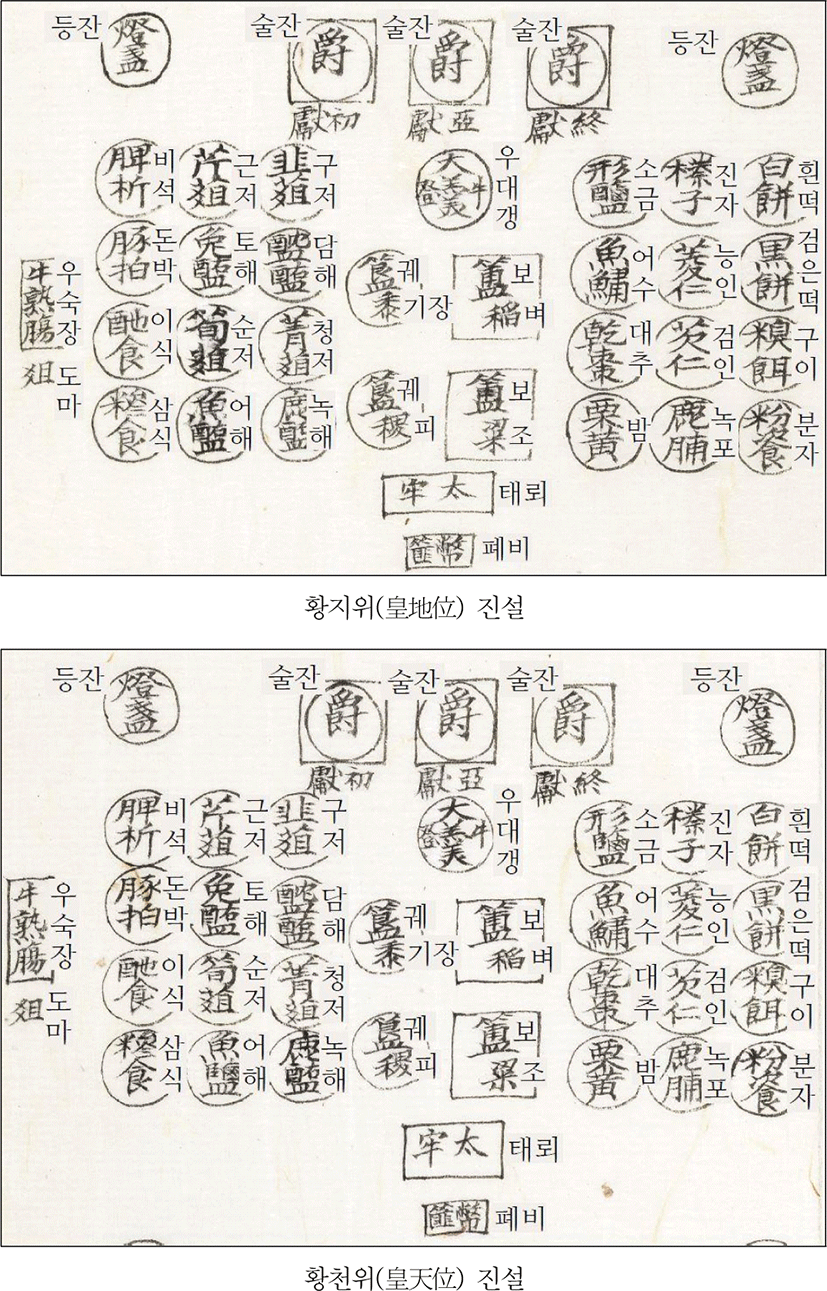 등잔 燈盞 술잔 爵 술잔 爵 술잔 爵 등잔 燈盞
獻初 獻亞 獻終
脾析 비석 芹葅 근저 韭葅 구저 大羹 牛 登 우대갱 形鹽 소금 榛子 진자 白餠 흰떡
豚拍 돈박 兔醢 토해 醓醢 담해 簋黍 궤 기장 簠稲 보 벼 魚鱐 어수 菱仁 능인 黒餠 검은떡
牛熟腸 俎 우숙장 도마
酏食 이식 筍葅 순저 菁葅 청저 乾棗 대추 芡仁 검인 糗餌 구이
糝食 삼식 魚醢 어해 鹿醢 녹해 簋稷 궤 피 簠粱 보 조 栗黄 밤 鹿脯 녹포 粉餈 분자
牢太 태뢰
篚幣 폐비
황지위(皇地位) 진설
등잔 燈盞 술잔 爵 술잔 爵 술잔 爵 등잔 燈盞
獻初 獻亞 獻終
脾析 비석 芹葅 근저 韭葅 구저 大羹 牛 登 우대갱 形鹽 소금 榛子 진자 白餠 흰떡
豚拍 돈박 兔醢 토해 醓醢 담해 簋黍 궤 기장 簠稲 보 벼 魚鱐 어수 菱仁 능인 黒餠 검은떡
牛熟腸 俎 우숙장 도마
酏食 이식 筍葅 순저 菁葅 청저 乾棗 대추 芡仁 검인 糗餌 구이
糝食 삼식 魚醢 어해 鹿醢 녹해 簋稷 궤 피 簠粱 보 조 栗黄 밤 鹿脯 녹포 粉餈 분자
牢太 태뢰
篚幣 폐비
황천위(皇天位) 진설